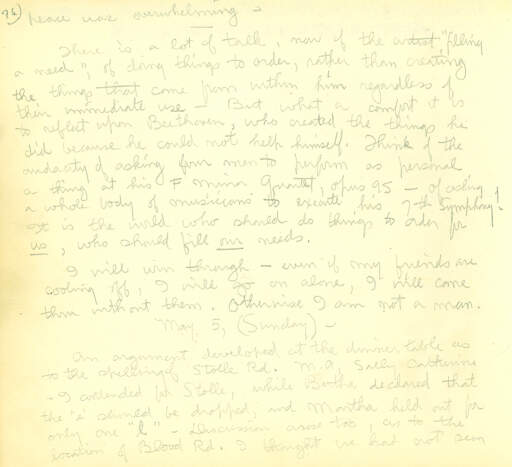 76) peace was overwhelming –
There is a lot of talk, now of the artist "filling
a need", of doing things to order, rather than creating
the things that come from within him regardless of
their immediate use – But what a comfort it is
to reflect upon Beethoven, who created the things he
did because he could not help himself. Think of the
audacity of asking four men to perform as personal
a thing as his F minor Quartet, opus 95 – of asking
a whole body of musicians to execute his 7th Symphony!
It is the world who should do things to order for
us, who should fill our needs.
I will win through – even if my friends are
cooling off, I will go on alone, I will come
thru without them. Otherwise I am not a man.
May 5, (Sunday) –
An argument developed at the dinner table as
to the spelling of Stolle Rd. M.A, Sally Catherine
– I contended for Stolle, while Bertha declared that
the "e" should be dropped, and Martha held out for
only one "l" – Discussion arose too, as to the
location of Blood Rd. I thought we had not seen